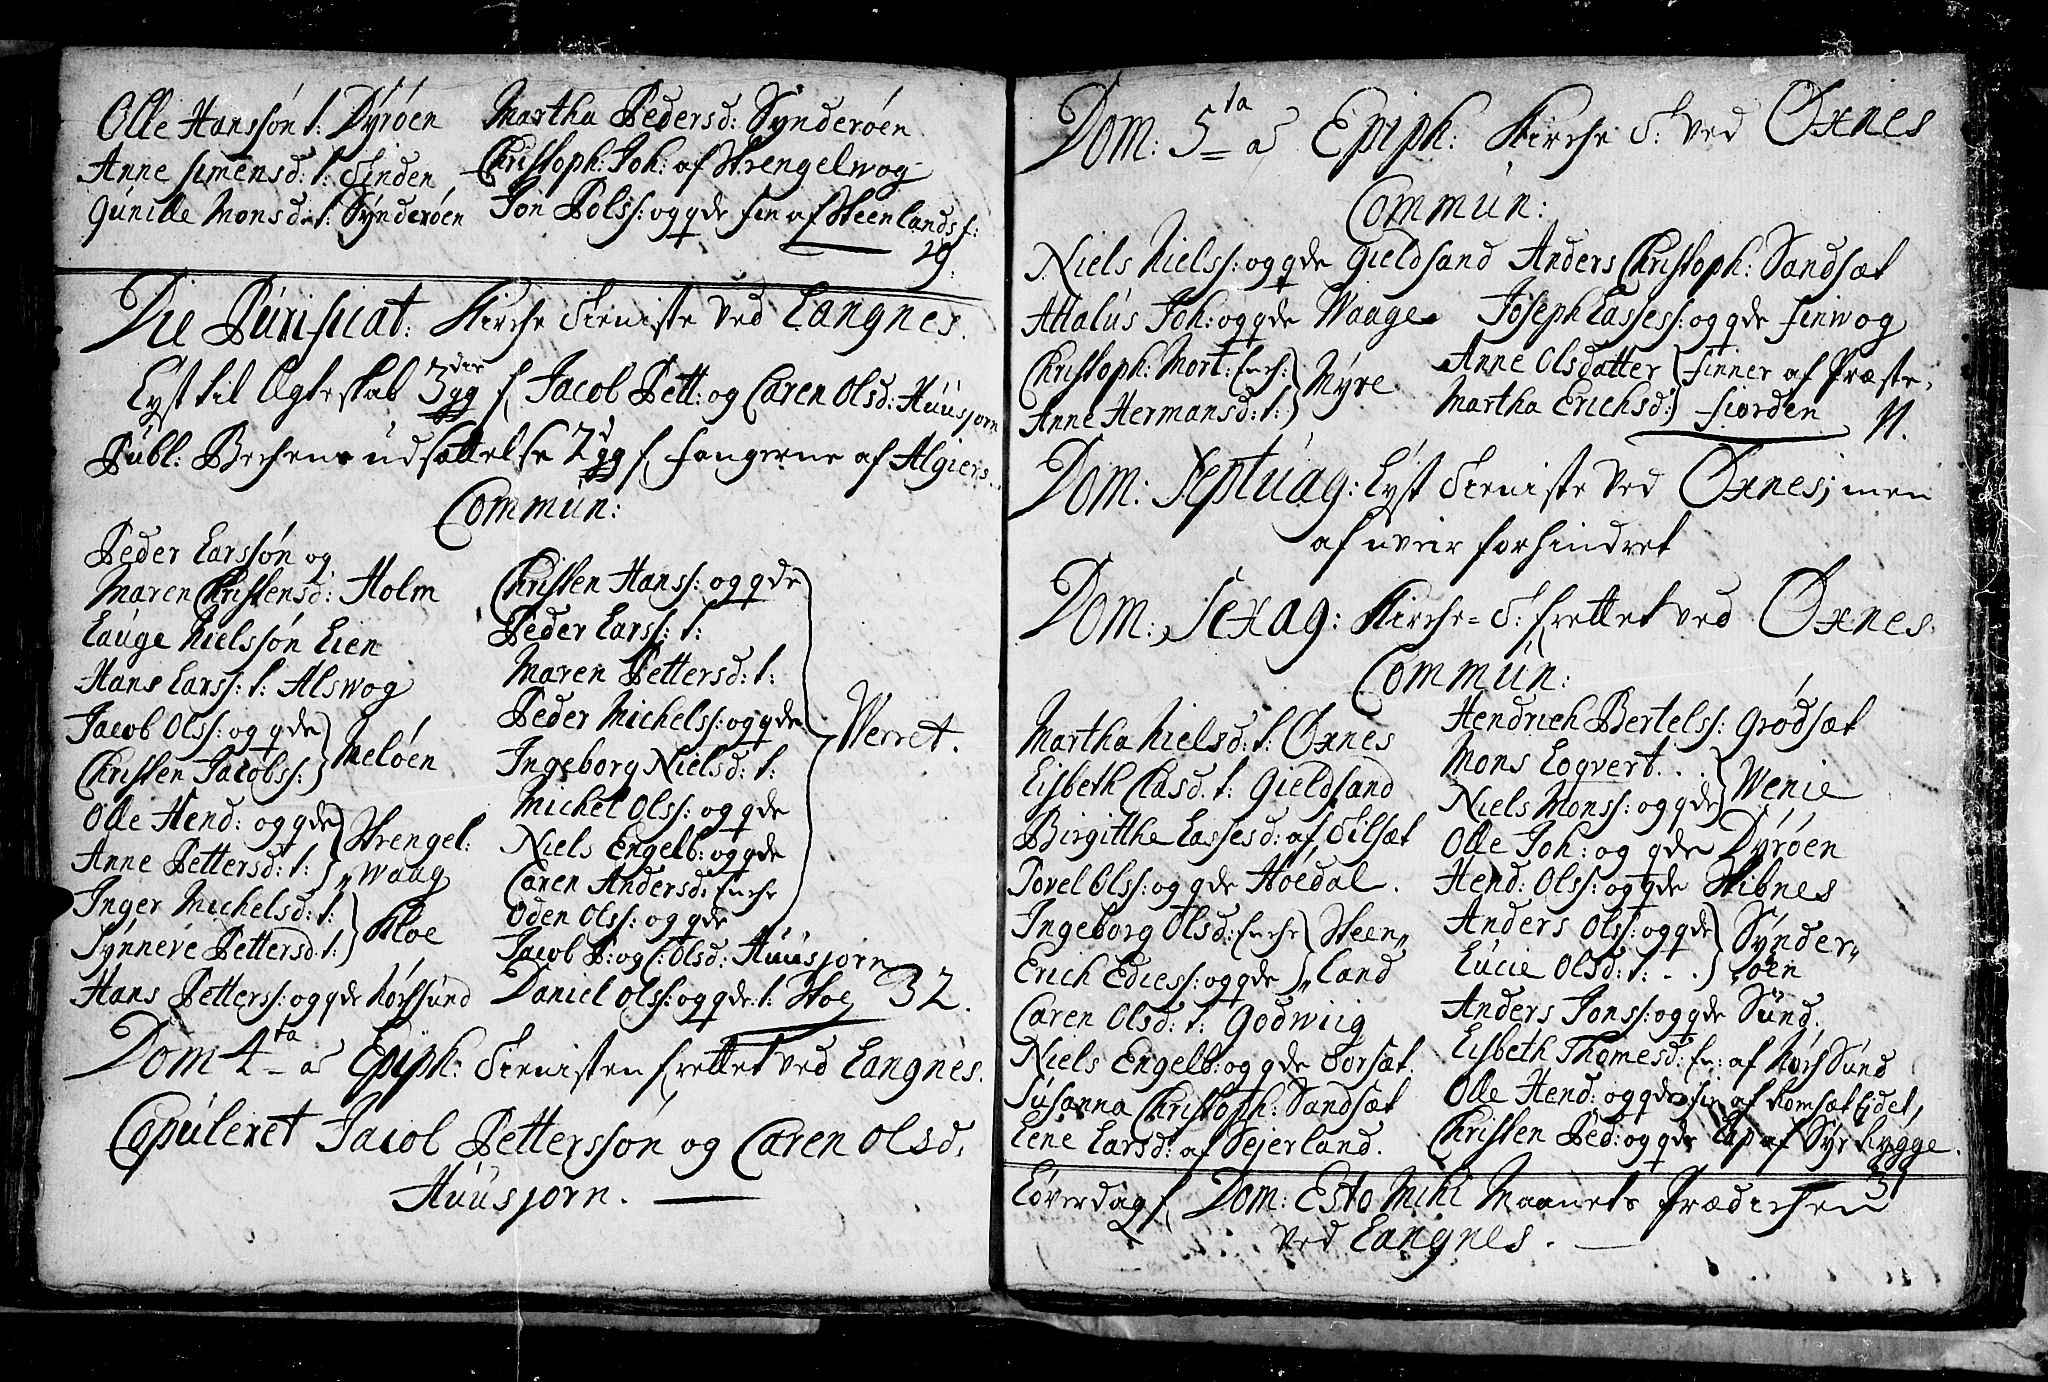 Olle Hanssøn t: Dÿrøen
Anne simensd: t: Finden
Gunille Monsd: t: Sÿnderøen
Martha Pedersd: Sÿnderøen
Christoph: Joh: af Strengelwog
Jon Polss: og qde fin af Steenlandsf:
29.
Die Purificat: Kirche Tieniste ved Langnes.
Lÿst til Ægteskab 3die gg f Jacob Pett: og Caren Olsd: Huusjorn
Publ: Bechens udsættelse 2d gg f fangerne af Algiers.
Commun:
Peder Larssøn og
Maren Christensd: Holm
Lauge Nielssøn Lien
Hans Larss: t: Alswog
Jacob Olss: og qde
Christen Jacobss: Meløen
Olle Hend: og qde Strengel:
Anne Pettersd: t: waag
Inger Michelsd: t:
Sÿnneve Pettersd: t: Kloe
Hans Petterss: og qde Rørsund
Christen Hanss: og qde
Peder Larss: t:
Maren Pettersd: t:
Peder Michelss: og qde
Ingeborg Nielsd: t: Werret.
Michel Olss: og qde
Niels Engelb: og qde
Caren Andersd: Enche
Oden Olss: og qde
Jacob P: og C: Olsd: Huusjorn
Daniel Olss: og qde t: Stoe 32.
Dom 4ta a Epiph: Tienisten frettet ved Langnes.
Copuleret Jacob Petterssøn og Caren Olsd,
Huusjorn.
Dom: 5ta a Epiph: Kirche T: ved Øxnes
Commun:
Niels Nielss: og qde Gieldsand
Attalus Joh: og qde Waage
Christoph: Mort: Ench: Mÿre
Anne Hermansd: t:
Anders Christoph: Sandsæt
Joseph Lassess: og qde finwog
Anne Olsdatter finner af Præste,
Martha Erichsd: fiorden
11.
Dom: Septuag: Lÿst Tieniste ved Øxnes; men
af uveir forhindret
Dom: Sexag: Kirche= T: frettet ved Øxnes.
Commun:
Martha Nielsd: t: Øxnes
Lisbeth Clasd: t: Gieldsand
Birgitthe Lassesd: af Tilsæt
Povel Olss: og qde Høedal.
Ingeborg Olsd: Enche Steen
Erich Ediess: og qde land
Caren Olsd: t: Godwiig
Niels Engelb: og qde Torsæt.
Susanna Christoph: Sandsæt
Lene Larsd: af Sejerland.
Hendrich Bertelss: Grødsæt
Mons Logvert. . .
Niels Monss: og qde Wenie
Olle Joh: og qde Dÿrøen
Hend: Olss: og qde Stibnes
Anders Olss: og qde Sÿnder
Lucie Olsd: t: - . øen
Anders Jonss: og qde Sund.
Lisbeth Thomesd: En: af Rørsund
Olle Hend: og qde fin af Romsæt Eidet,
Christen Ped: og qde Lap af Sÿrkygge.
31
Løverdag f Dom: Esto Mihi Maanets Prædichen
ved Langnes.